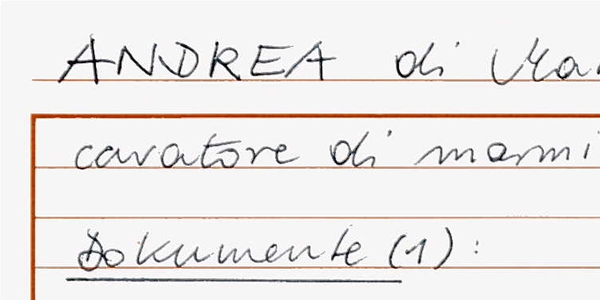 ANDREA di
cavatore di marmi
Dokumente (1):